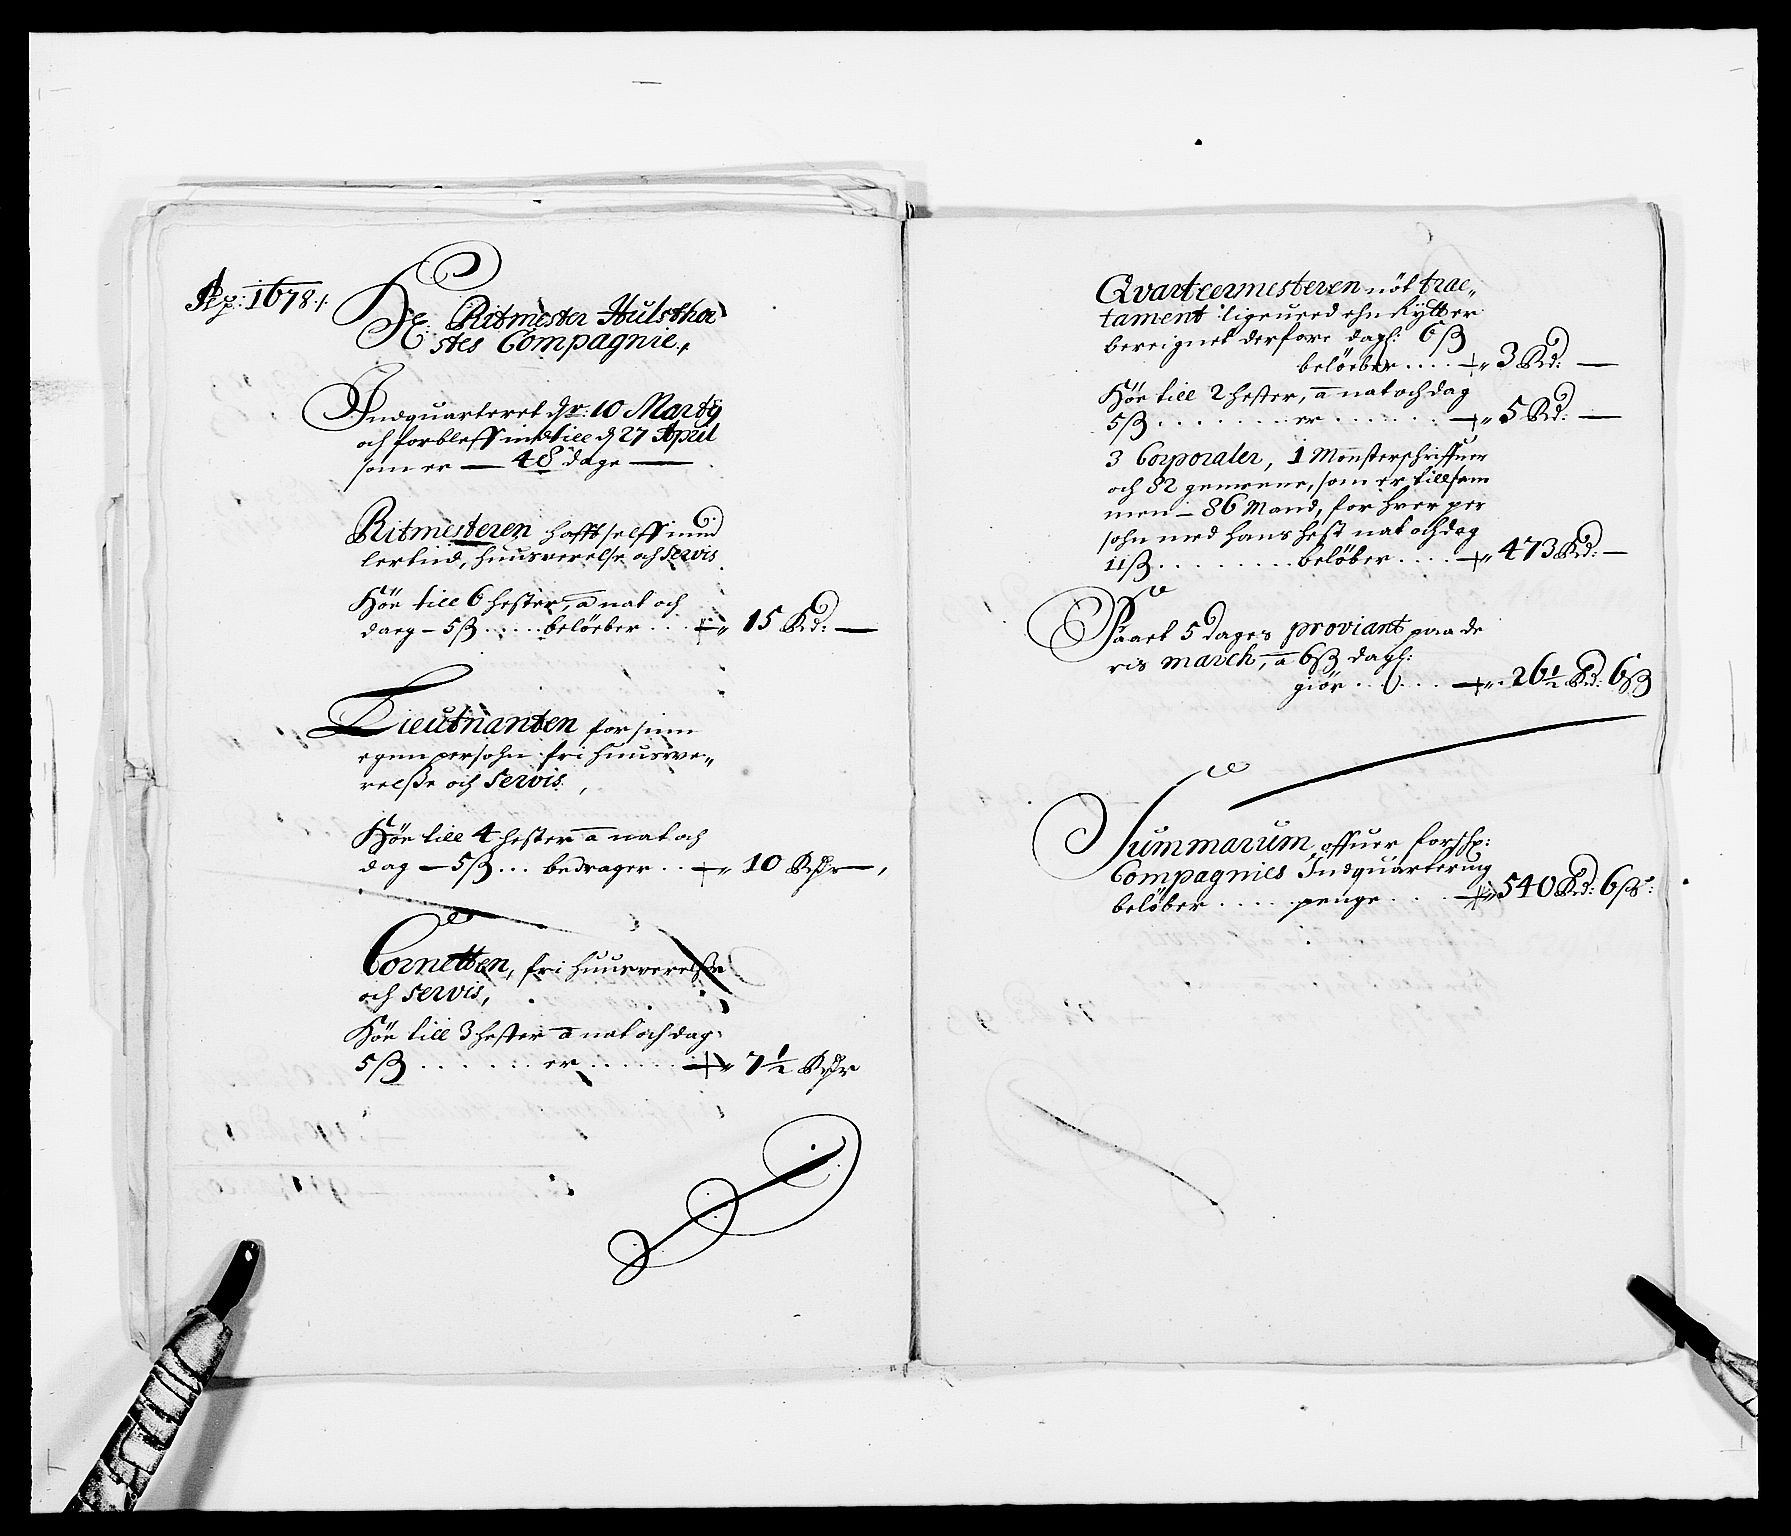 Ao: 1678 /.
Hr: Ritmester Hulsthor
stes Compagnie.
Indquarteret dr: 10 Martij
och forbleff indtill d 27 April
som er — 48 dage —
Ritmesteren hafft selff und
lertiid, huusverelse och Servis
Höe till 6 hester, a nat och
daeg — 5ß ..... belöeber ... 15 Rd: —
Lieutnanten for sinn
egen persohn fri huusve„
relße och Servis,
Höe till 4 hester a nat och
dag — 5ß ... bedrager .. 10 Rdr —
Cornetten, fri huusverelße
och Servis,
Höe till 3 hester a nat och dag
5ß ...... er ...... 7½ Rdr
Qvarteermesteren nöt trac„
tament ligeveed ehn Rytter
bereignet derfore dagl: 6ß
belöeber .... 3 Rd: —
Höe till 2 hester, a nat och dag
5ß ...... er ...... 5 Rd: —
3 Corporaler, 1 Mönsterschriffuer
och 82 gemeene, som er tillsam
men — 86 Mand, for hver per
sohn med hans hest nat och dag
11ß ........ belöber .... 473 Rd: —
Faaet 5 dages proviant paa de
ris march, a 6ß dagl:
giör ..... 26½ Rd: 6ß
Summarum offuer forschr:
Compagnies Indquartering
belöber .... penge .... 540 Rd: 6ß: